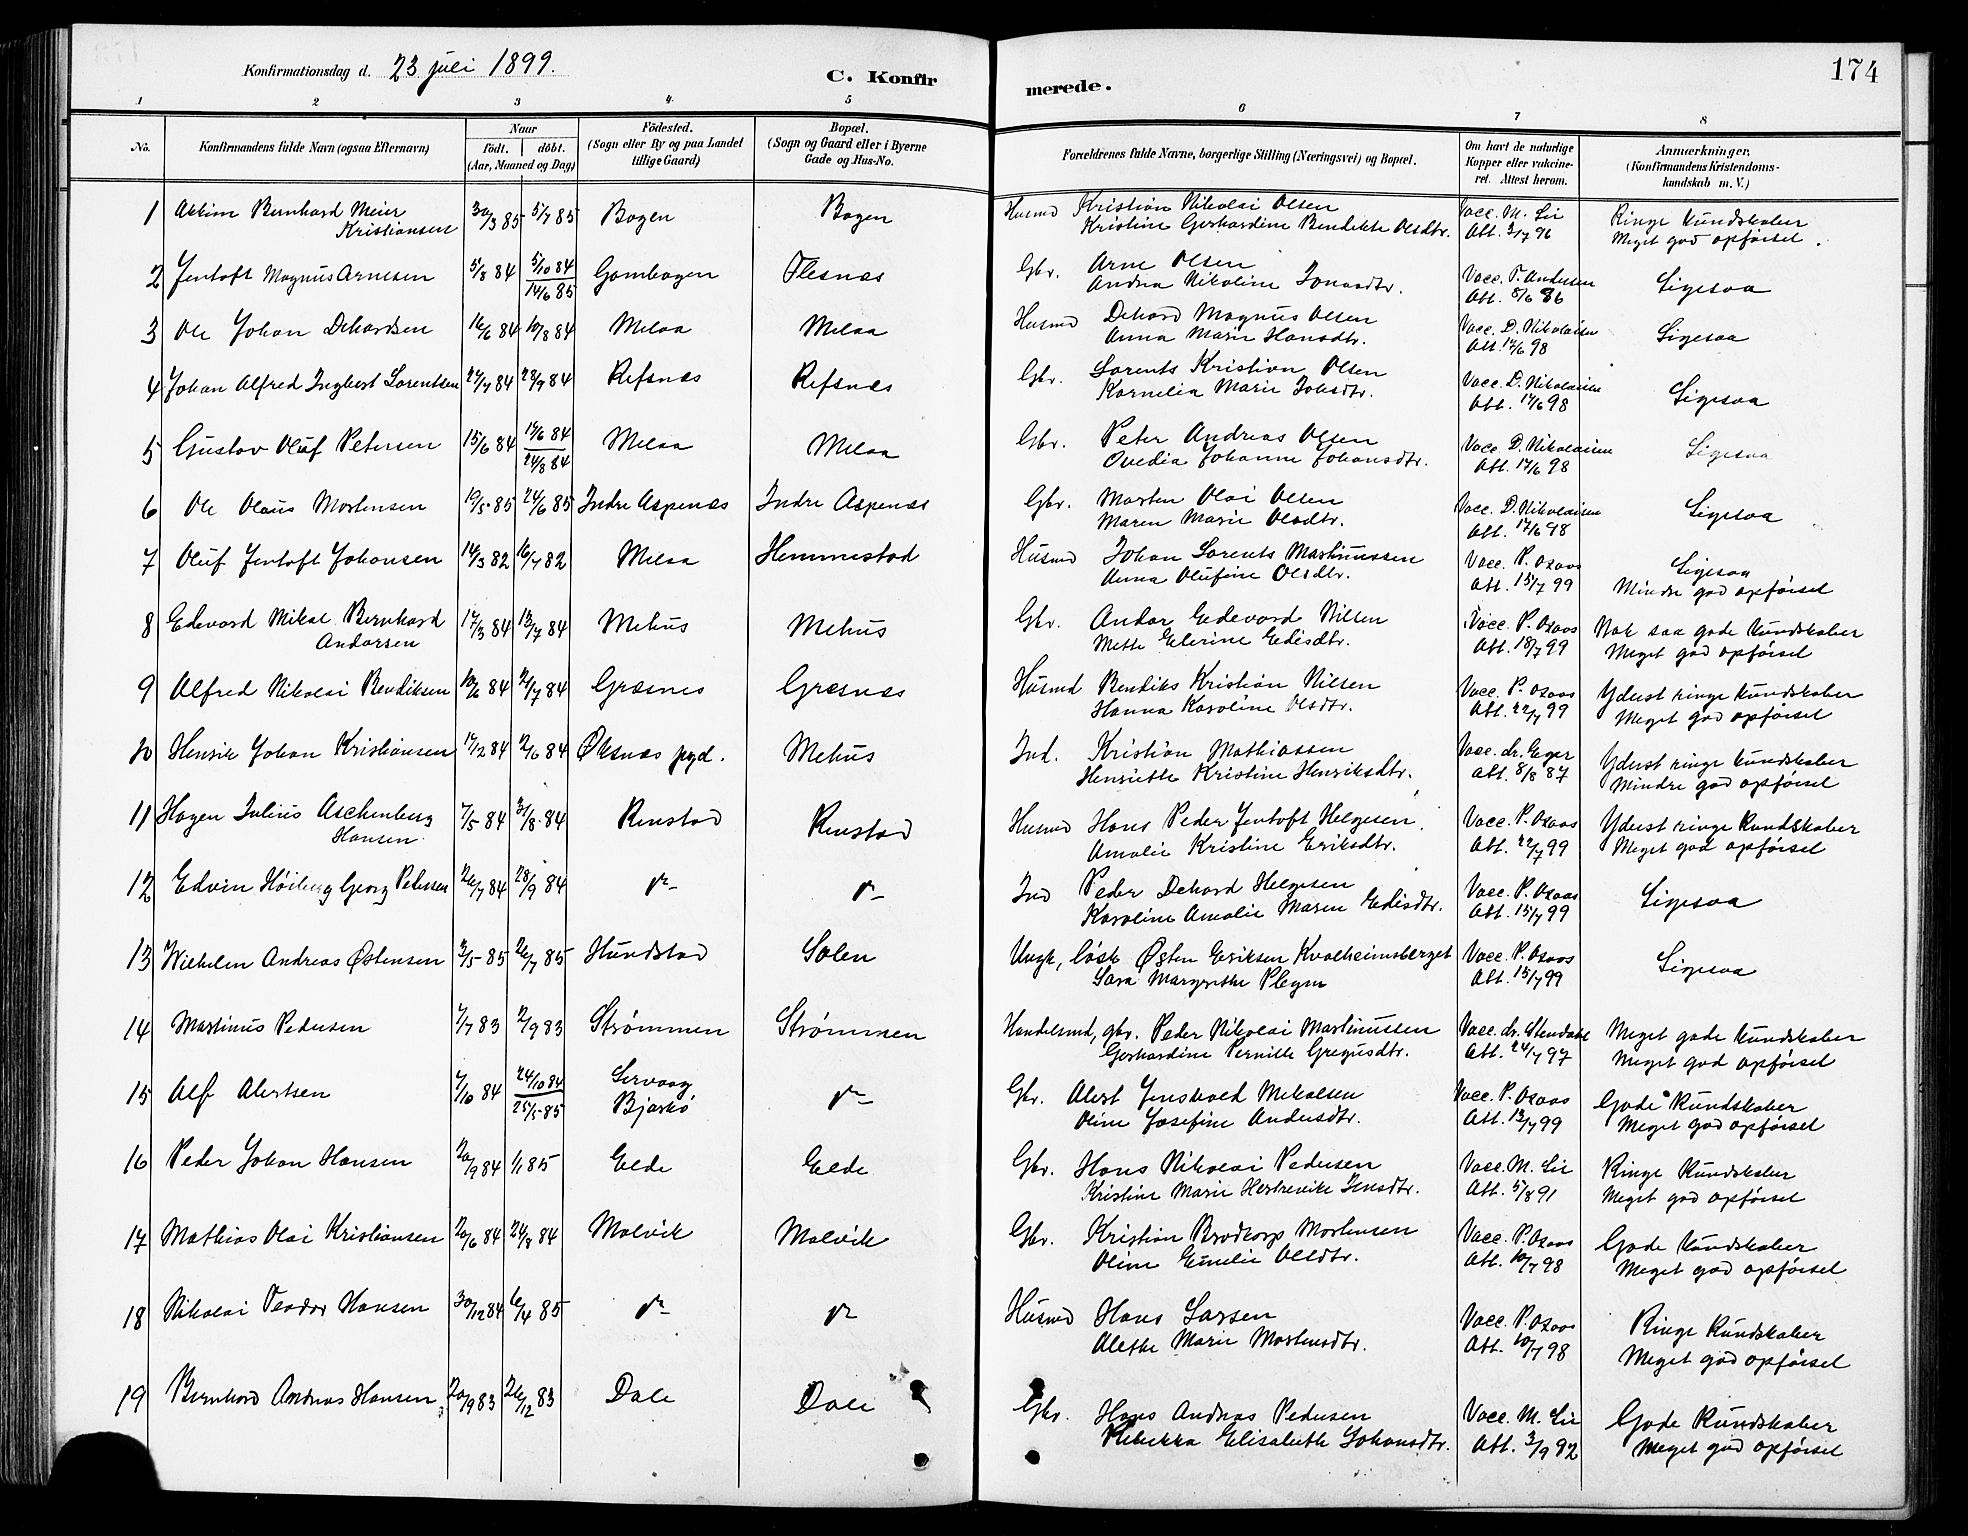 Konfirmationsdag d. 23 juli 1899.
C. Konfirmerede.
174
1 2 3 4. 5 6 7 8
No. Konfirmandens fulde Navn (ogsaa Efternavn) Naar født. døbt. (Aar, Maaned og Dag) Födested. (Sogn eller By og paa Landet tillige Gaard) Bopæl. (Sogn og Gaard eller i Byerne Gade og Hus-No. Forældrenes fulde Navne, borgerlige Stilling (Næringsvei) og Bopæl. Om havt de naturlige Kopper eller vakcineret. Attest herom. Anmærkninger, (Konfirmandens Kristendomskundskab m. V.)
1 Bernhard Meier Kristiansen 30/3 85 5/7 85 Bogen Bogen Husmd Kristian Nikolai Olsen Kristine Gerhardine Bendikte Olsdtr. Vacc. M. Lie Att. 3/7 96 Ringe Kundskaber Meget god opførsel.
2 Jentoft Magnus Arnesen 5/8 84 5/10 84 14/6 85 Gambogen Flesnæs Gbr. Arne Olsen Andrea Nikoline Jonasdtr. Vacc. T. Andersen Att. 8/6 86 Ligesaa
3 Ole Johan Dehardsen 16/6 84 10/8 84 Melaa Melaa Husmd Dehard Magnus Olsen Anna Marie Hansdtr. Vacc. D. Nikolaisen Att. 17/6 98 Ligesaa
4 Johan Alfred Ingbert Lorentsen 27/7 84 28/9 84 Refsnæs Refsnæs Gbr. Lorents Kristian Olsen Kornelia Marie Johsdtr. Vacc. D. Nikolaisen Att. 17/6 98 Ligesaa
5 Gustav Oluf Petersen 15/6 84 17/6 84 24/8 84 Melaa Melaa Gbr. Peter Andreas Olsen Ovedia Johanne Johansdtr. Vacc. D. Nikolaisen Att. 17/6 98 Ligesaa
6 Ole Olaus Mortensen 10/5 85 24/6 85 Indre Aspenæs Indre Aspenæs Gbr. Morten Olai Olsen Maren Marie Olsdtr. Vacc. D. Nikolaisen Att. 17/6 98 Ligesaa
7 Oluf Jentoft Johansen 14/3 82 16/7 82 Melaa Hemmestad Husmd Johan Lorents Martinussen Anna Olufine Olsdtr. Vacc. P. Att. 15/7 99 Ligesaa Mindre god opførsel
8 Edevard Mikal Bernhard Andorsen 17/3 84 13/7 84 Mehus Mehus Gbr. Andor Edevard Nilsen Mette Elerine Edisdtr. Vacc. P. Att. 18/7 99 Nok saa gode Kundskaber Meget god opførsel
9 Alfred Nikolai Bendiksen 10/6 84 2/7 84 Græsnes Græsnæs Husmd Bendiks Kristian Nilsen Hanna Karoline Olsdtr. Vacc. P. Att. 22/7 99 Yderst ringe Kundskaber Meget god opførsel
10 Henrik Johan Kristiansen 17/2 84 2/6 84 Øksnæs pgd. Mehus Ind. Kristian Mathiassen Henriette Kristine Henriksdtr. Vacc. dr. Eger Att. 8/8 87 Yderst ringe Kundskaber Mindre god opførsel
11 Hagen Julius Aschenberg Hansen 7/5 84 31/8 84 Renstad Renstad Husmd Hans Peder Jentoft Helgesen. Amalie Kristine Eriksdtr. Vacc. P. Att. 22/7 99 Yderst ringe Kundskaber Meget god opførsel
12 Edvin Höiberg Georg Petersen 26/7 84 28/9 84 Ind Peder Dehard Helgesen Karoline Amalie Maren Edisdtr. Vacc. P. Att. 15/7 99 Ligesaa
13 Wilhelm Andreas Østensen 3/5 85 26/7 85 Hundstad Solen Ungk, løsk Østen Eriksen Kvalheimsberget Sara Margrethe Plegm Vacc. P. Att. 15/7 99 Ligesaa
14 Martinus Pedersen 7/7 83 2/9 83 Strømmen Strømmen Handelsmd, gbr. Peder Nikolai Martinussen Gerhardine Pernille Gregusdtr. Vacc. dr. Att. 24/7 97 Meget gode Kundskaber Meget god opførsel
15 Alf Alertsen 7/10 84 24/10 84 25/5 85 Lervaag Bjarkö Gbr. Alert Jenshold Mikalsen Oline Josefine Andersdtr. Vacc. P. Att. 13/7 99 Gode Kundskaber Meget god opførsel
16 Peder Johan Hansen 20/9 84 1/1 85 Elde Elde Gbr. Hans Nikolai Pedersen Kristine Marie Jensdtr. Vacc. M. Lie Att. 5/8 91 Ringe Kundskaber Meget god opførsel
17 Mathias Olai Kristiansen 20/6 84 24/8 84 Malvik Malvik Gbr. Kristian Brodkorp Mortensen Oline Emelie Olsdtr. Vacc. P. Att. 10/7 98 Gode Kundskaber Meget god opførsel
18 Nikolai Teodor Hansen 30/12 84 6/4 85 Husmd Hans Larsen Alethe Marie Mortensdtr. Vacc. P. Att. 10/7 98 Ringe Kundskaber Meget god opførsel
19 Bernhard Andreas Hansen 20/9 83 26/12 83 Dale Dale Gbr. Hans Andreas Pedersen Rebekka Elisabeth Johansdtr. Vacc. M. Lie Att. 3/9 92 Gode Kundskaber Meget god opførsel